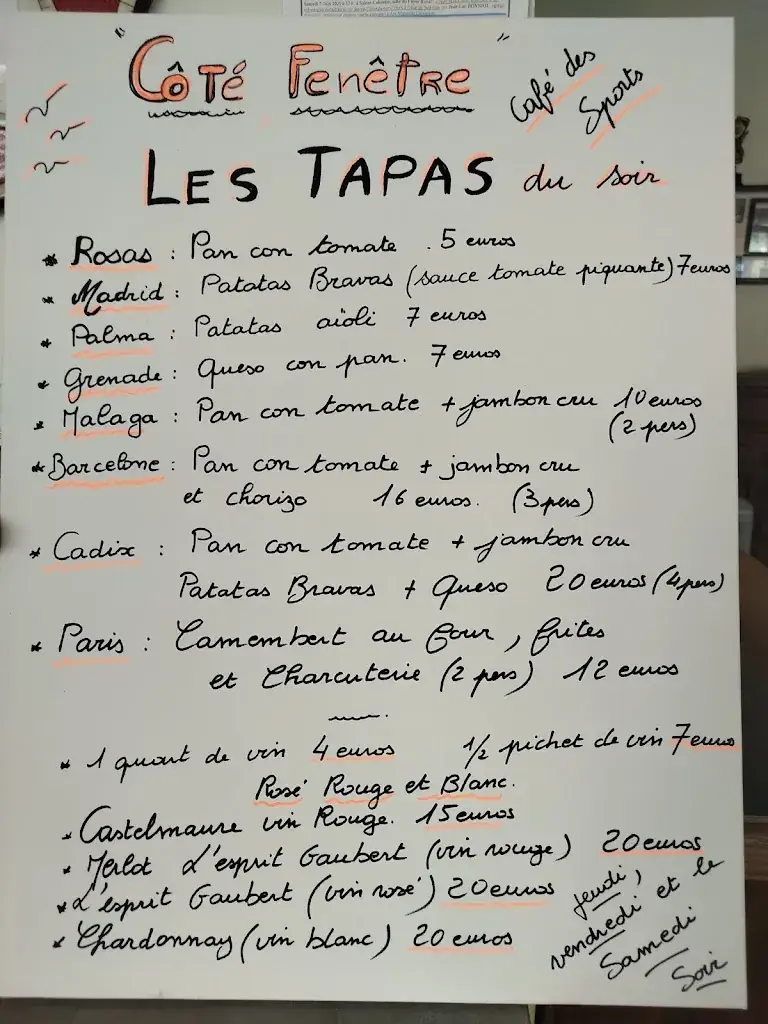 "Côté Fenêtre"
Café des
Sports
LES TAPAS du soir
* Rosas : Pan con tomate . 5 euros
* Madrid : Patatas Bravas (sauce tomate piquante) 7 euros
* Palma : Patatas aïoli 7 euros
* Grenade : Queso con pan. 7 euros
* Malaga : Pan con tomate + jambon cru 10 euros
(2 pers)
* Barcelone : Pan con tomate + jambon cru
et chorizo 16 euros. (3 pers)
* Cadix : Pan con tomate + jambon cru
Patatas Bravas + Queso 20 euros (4 pers)
* Paris : Camembert au four, frites
et Charcuterie (2 pers) 12 euros
* 1 quart de vin 4 euros 1/2 pichet de vin 7 euros
Rosé Rouge et Blanc.
* Castelmaure vin Rouge. 15 euros
* Merlot L'esprit Gaubert (vin rouge) 20 euros
* L'esprit Gaubert (vin rosé) 20 euros
* Chardonnay (vin blanc) 20 euros
jeudi,
vendredi et le
Samedi
Soir